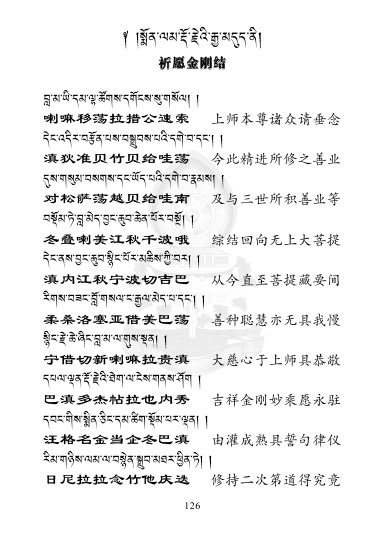 ༄། །སྨོན་ལམ་རྡོ་རྗེའི་རྒྱ་མདུད་ནི།
祈愿金刚结
བླ་མ་ཡི་དམ་ལྷ་ཚོགས་དགོངས་སུ་གསོལ། །
喇嘛移荡拉措公速索 上师本尊诸众请垂念
དེང་འདིར་བརྩོན་པས་བསྒྲུབས་པའི་དགེ་བ་དང་། །
滇狄准贝竹贝给哇荡 今此精进所修之善业
དུས་གསུམ་བསགས་དང་ཡོད་པའི་དགེ་བ་རྣམས། །
对松萨荡越贝给哇南 及与三世所积善业等
བསྡོམ་ཏེ་བླ་མེད་བྱང་ཆུབ་ཆེན་པོར་བསྔོ། །
冬叠喇美江秋千波哦 综结回向无上大菩提
དེང་ནས་བྱང་ཆུབ་སྙིང་པོར་མཆིས་ཀྱི་བར། །
滇内江秋宁波切吉巴 从今直至菩提藏要间
རིགས་བཟང་བློ་གསལ་ང་རྒྱལ་མེད་པ་དང་། །
柔桑洛塞亚借美巴荡 善种聪慧亦无具我慢
སྙིང་རྗེ་ཆེ་ཞིང་བླ་མ་ལ་གུས་ལྡན། །
宁借切新喇嘛拉贵滇 大慈心于上师具恭敬
དཔལ་ལྡན་རྡོ་རྗེའི་ཐེག་ལ་ངེས་གནས་ཤོག །
巴滇多杰帖拉也内秀 吉祥金刚妙乘愿永驻
དབང་གིས་སྨིན་ཅིང་དམ་ཚིག་སྡོམ་པར་ལྡན། །
汪格名金当企冬巴滇 由灌成熟具誓句律仪
རིམ་གཉིས་ལམ་ལ་བསྙེན་སྒྲུབ་མཐར་ཕྱིན་ཏེ། །
日尼拉拉念竹他庆迭 修持二次第道得究竟
126